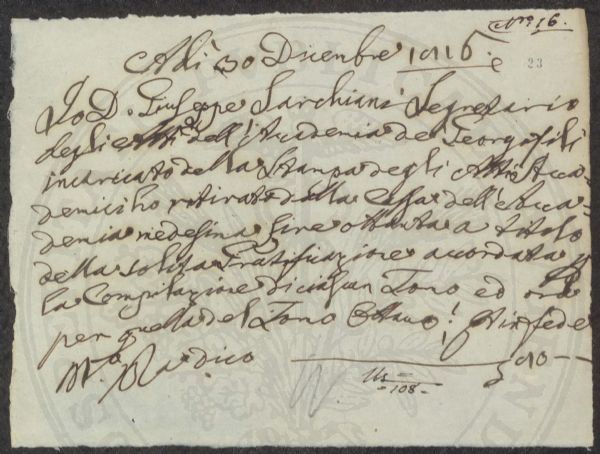 N.º 16.
Adì 30 Dicenbre 1816.
23
Io D. Giuseppe Sarchiani Segretario
degli Atti dell'Accademia de Georgofili
incaricato della Stampa degli Atti Acca=
demici ho ritirato dalla Cassa dell'Acca=
demia medesima Lire ottanta a titolo
della solita Gratificazione acordata p
la Compilazione di ciascun Tomo ed ora
per quella del Tomo Ottavo! In fede
M.º pp.ª dico
£ 80 —
Us —
= 108 =